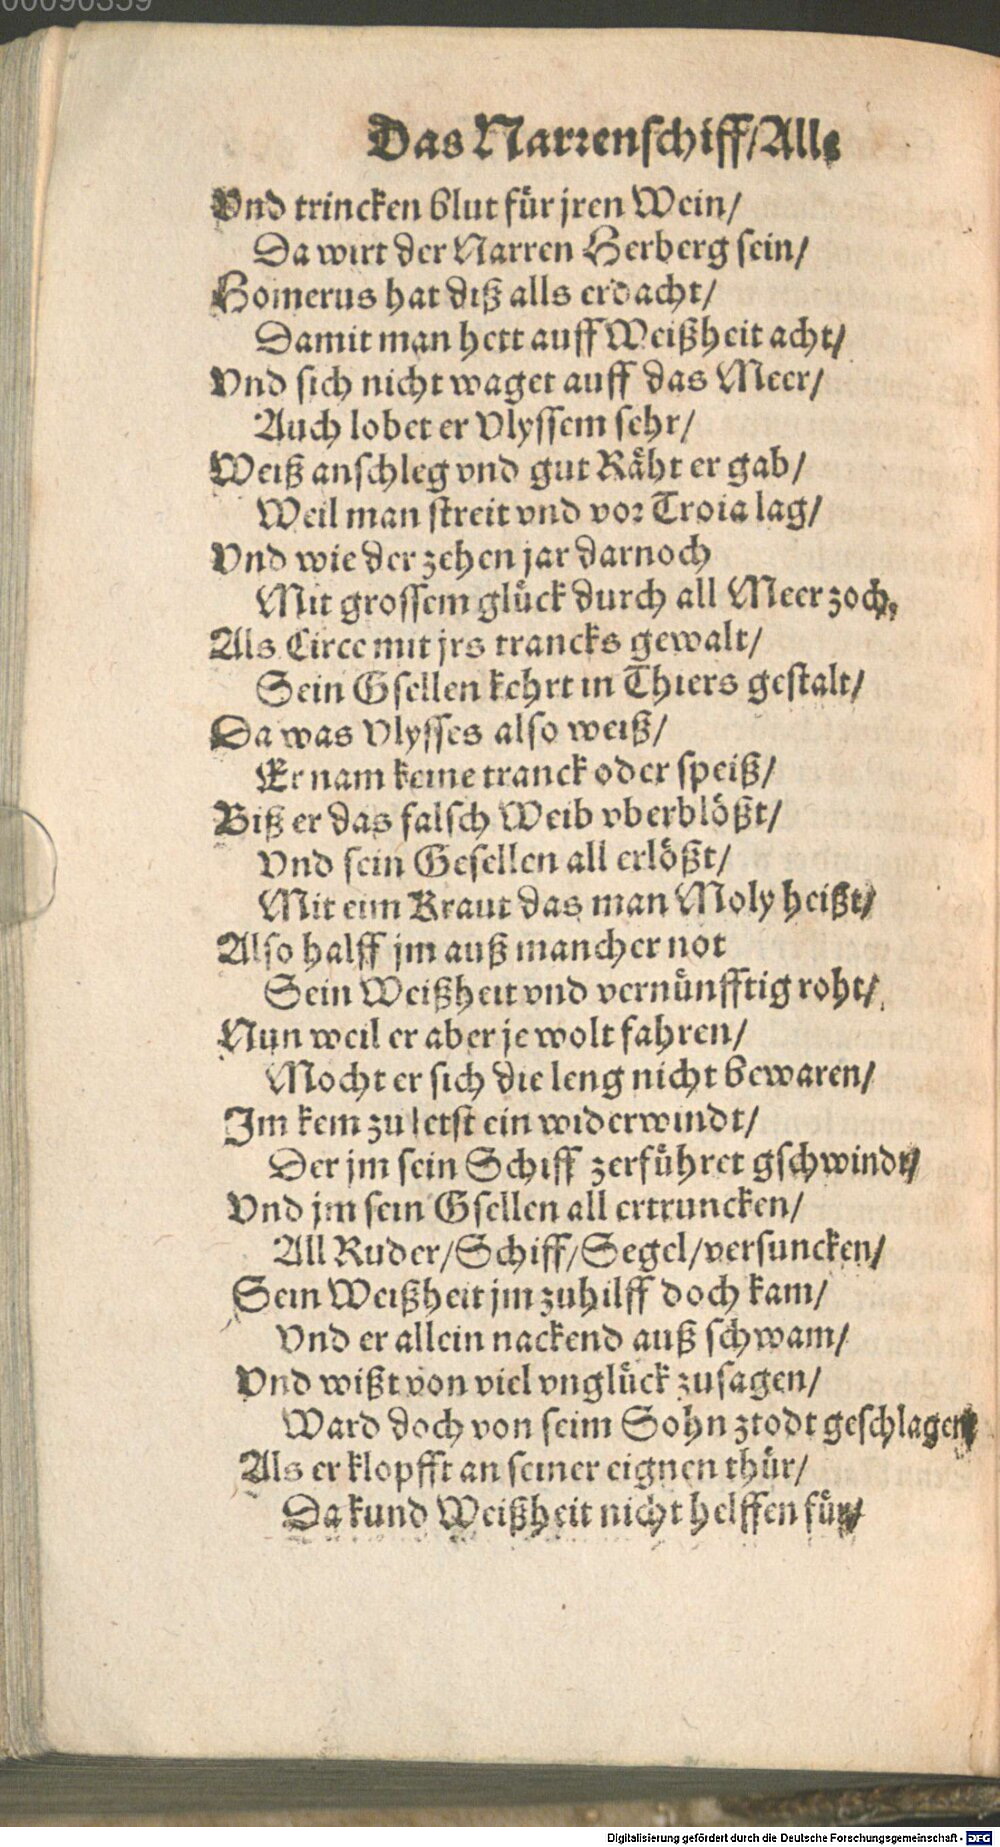 00090359
Das Narrenschiff/ Alle
Vnd trincken blut für jren Wein/
Da wirt der Narren Herberg sein/
Homerus hat diß alls erdacht/
Damit man hett auff Weißheit acht/
Vnd sich nicht waget auff das Meer/
Auch lobet er Vlyssem sehr/
Weiß anschleg vnd gut Räht er gab/
Weil man streit vnd vor Troia lag/
Vnd wie der zehen jar darnoch
Mit grossem glück durch all Meer zoch,
Als Circe mit jrs trancks gewalt/
Sein Gsellen kehrt in Thiers gestalt/
Da was Vlysses also weiß/
Er nam keine tranck oder speiß/
Biß er das falsch Weib vberblößt/
Vnd sein Gesellen all erlößt/
Mit eim Kraut das man Moly heißt/
Also halff jm auß mancher not
Sein Weißheit vnd vernünfftig roht/
Nun weil er aber je wolt fahren/
Mocht er sich die leng nicht bewaren/
Im kem zu letst ein widerwindt/
Der jm sein Schiff zerführet gschwindt/
Vnd jm sein Gsellen all ertruncken/
All Ruder/ Schiff/ Segel/ versuncken/
Sein Weißheit jm zuhilff doch kam/
Vnd er allein nackend auß schwam/
Vnd wißt von viel vnglück zusagen/
Ward doch von seim Sohn ztodt geschlagen
Als er klopfft an seiner eignen thür/
Da kund Weißheit nicht helffen für/
Digitalisierung gefördert durch die Deutsche Forschungsgemeinschaft - DFG